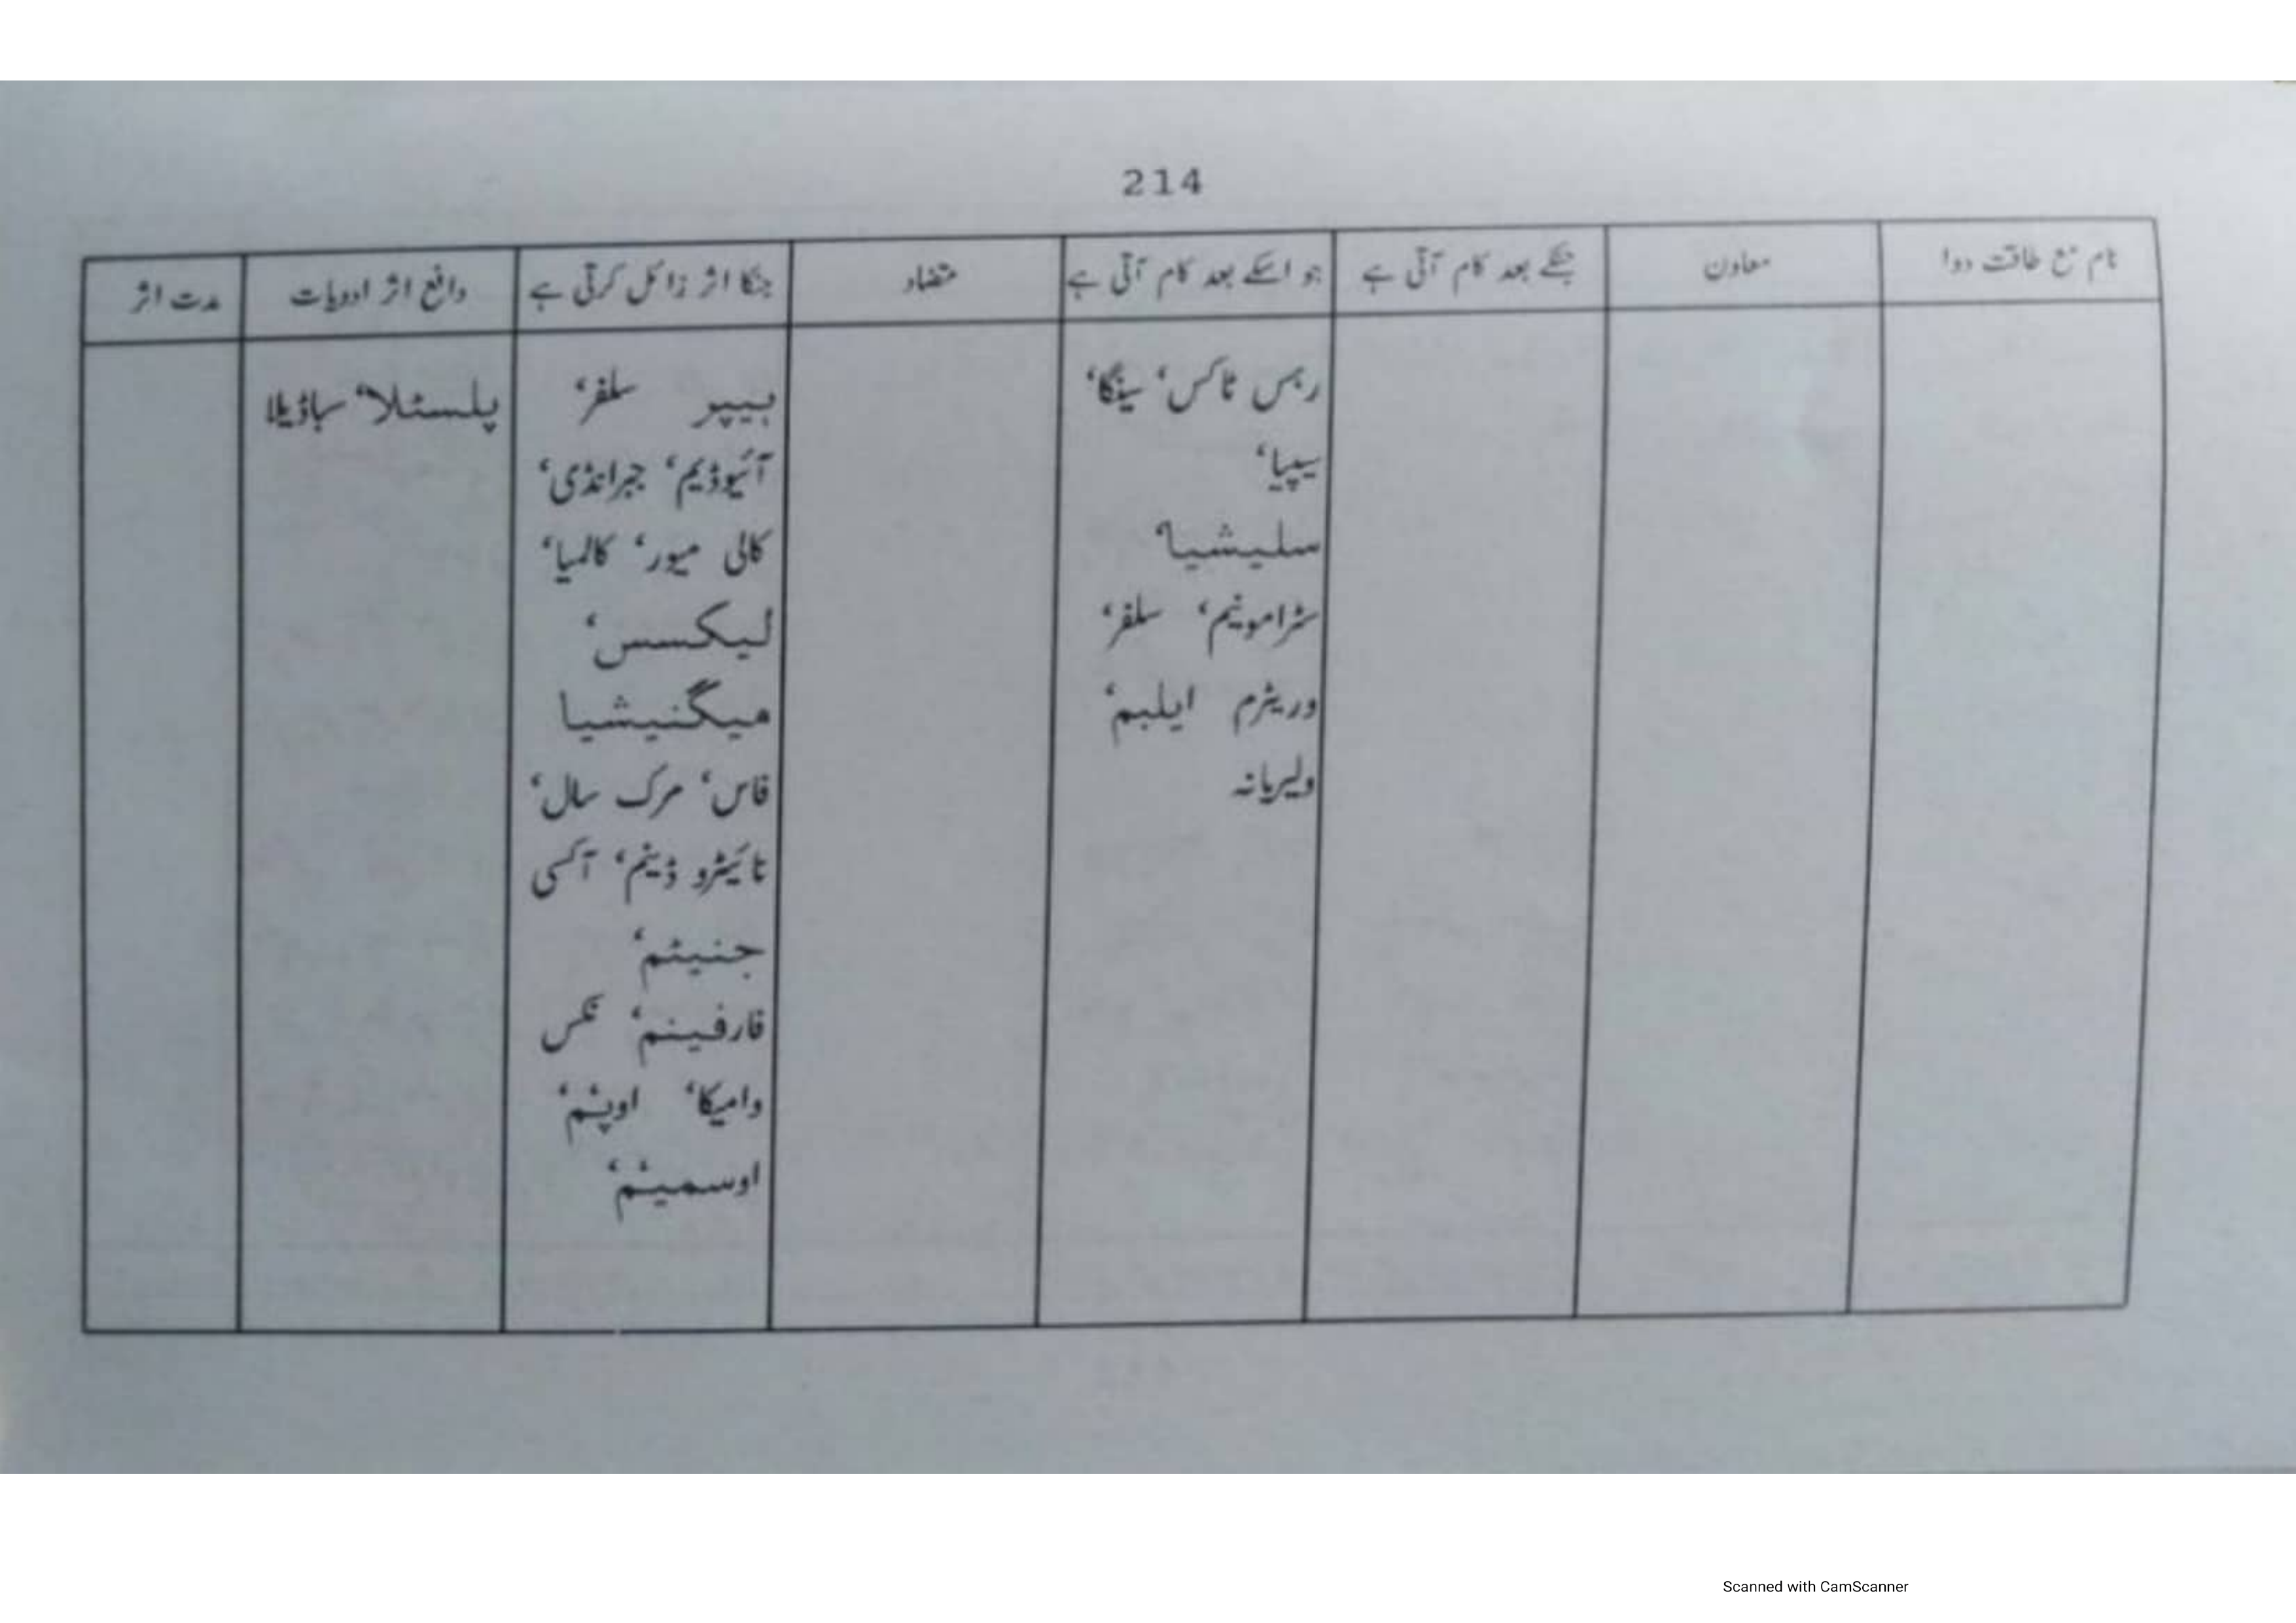 214
نام مع طاقت دوا
معاون
جنکے بعد کام آتی ہے
جو اسکے بعد کام آتی ہے
متضاد
جنکا اثر زائل کرتی ہے
دافع اثر ادویات
مدت اثر
رہس ٹاکس‘ سینگا‘
سیپیا‘
سلیشیا‘
سٹرامونیم‘ سلفر‘
وریٹرم ایلبم‘
ولیریانہ
ہیپر سلفر‘
آئیوڈیم‘ جبرانڈی‘
کالی میور‘ کالمیا‘
لیکسس‘
میگنیشیا
فاس‘ مرک سال‘
نائیٹرو ڈینم‘ آکسی
جنیٹم‘
فارفینم‘ نکس
وامیکا‘ اوپئم‘
اوسمیئم‘
پلسٹلا‘ سباڈیلا
Scanned with CamScanner